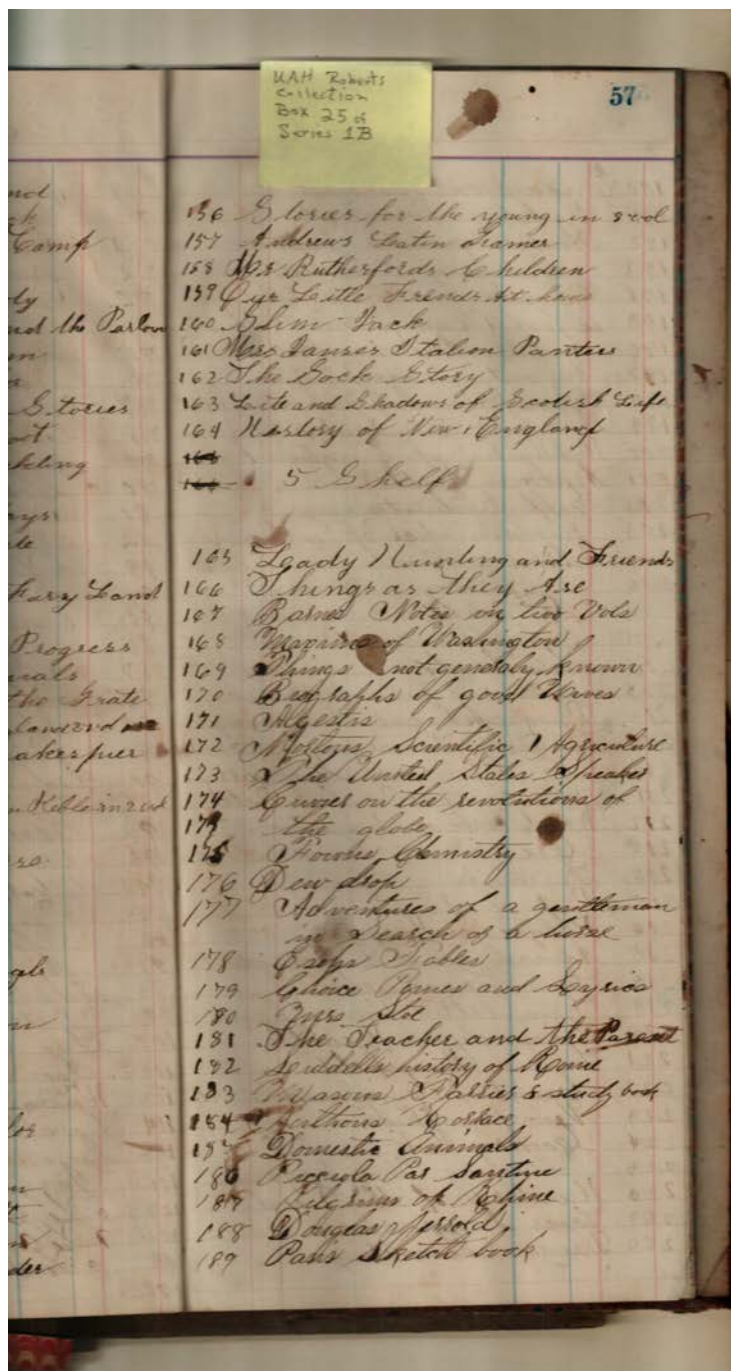 UAH Roberts
Collection
Box 25 of
Series 1B
57
nd
Camp
nd the Parlour
Stories
keting
ays
Fary Land
Progress
mals
the Grate
akespier
gels
der
156 Stories for the young in 8 vol
157 Andrews Latin Gramer
158 Mrs Rutherfords Children
159 Our Little Frends At home
160 Slim Jack
161 Mrs Jamses Italion Panters
162 The Sock Story
163 Lite and Shadows of Scotish Life
164 Hestory of New England
165
166 5 Shelf
165 Leady Hunting and Friends
166 Things as they Are
167 Barnes Notes in two Vols
168 Maxims of Washington
169 Things not generaly known
170 Biographs of good Wives
171 Algestis
172 Nortons Scientific Agriculure
173 The United States Speaker
174 Cuvier on the revolutions of
175 the globe
175 Fowns Chemistry
176 Dew drop
177 Adventures of a gentleman
in Search of a horse
178 Esops Fables
179 Choice Pomes and Lyrics
180 Mrs Stoe
181 The Teacher and the Parent
182 Liddells history of Rome
183 Masons Farrier & study book
184 Anthons Horace
185 Domestic Animals
186 Picciola Par Santine
187 Pilgrims of Rhine
188 Dougeas Jerrold
189 Paris Sketch book